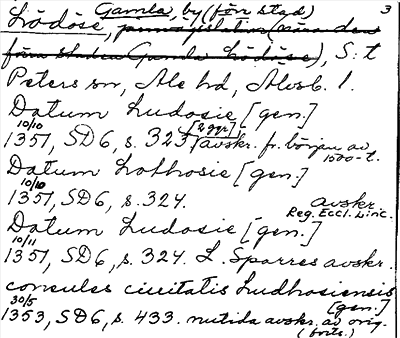 Gamla, by (förr stad) 3
Lödöse, gamla fästen (nära den
förra staden Gamla Lödöse), S:t
Peters sn, Ale hd, Älvsb. l.
Datum Ludosie [gen.]
10/10 [2 ggr]
1351, SD6, s. 323 (avskr. fr. början av
1500-t.
Datum Lothosie [gen.]
10/10
1351, SD6, s. 324. avskr.
Reg. Eccl. Linc.
Datum Ludosie [gen.]
10/11
1351, SD6, s. 324. L. Sparres avskr.
consules ciuitatis Ludhosiensis
30/5 [gen.]
1353, SD6, s. 433. nutida avskr. av orig.
(forts.)